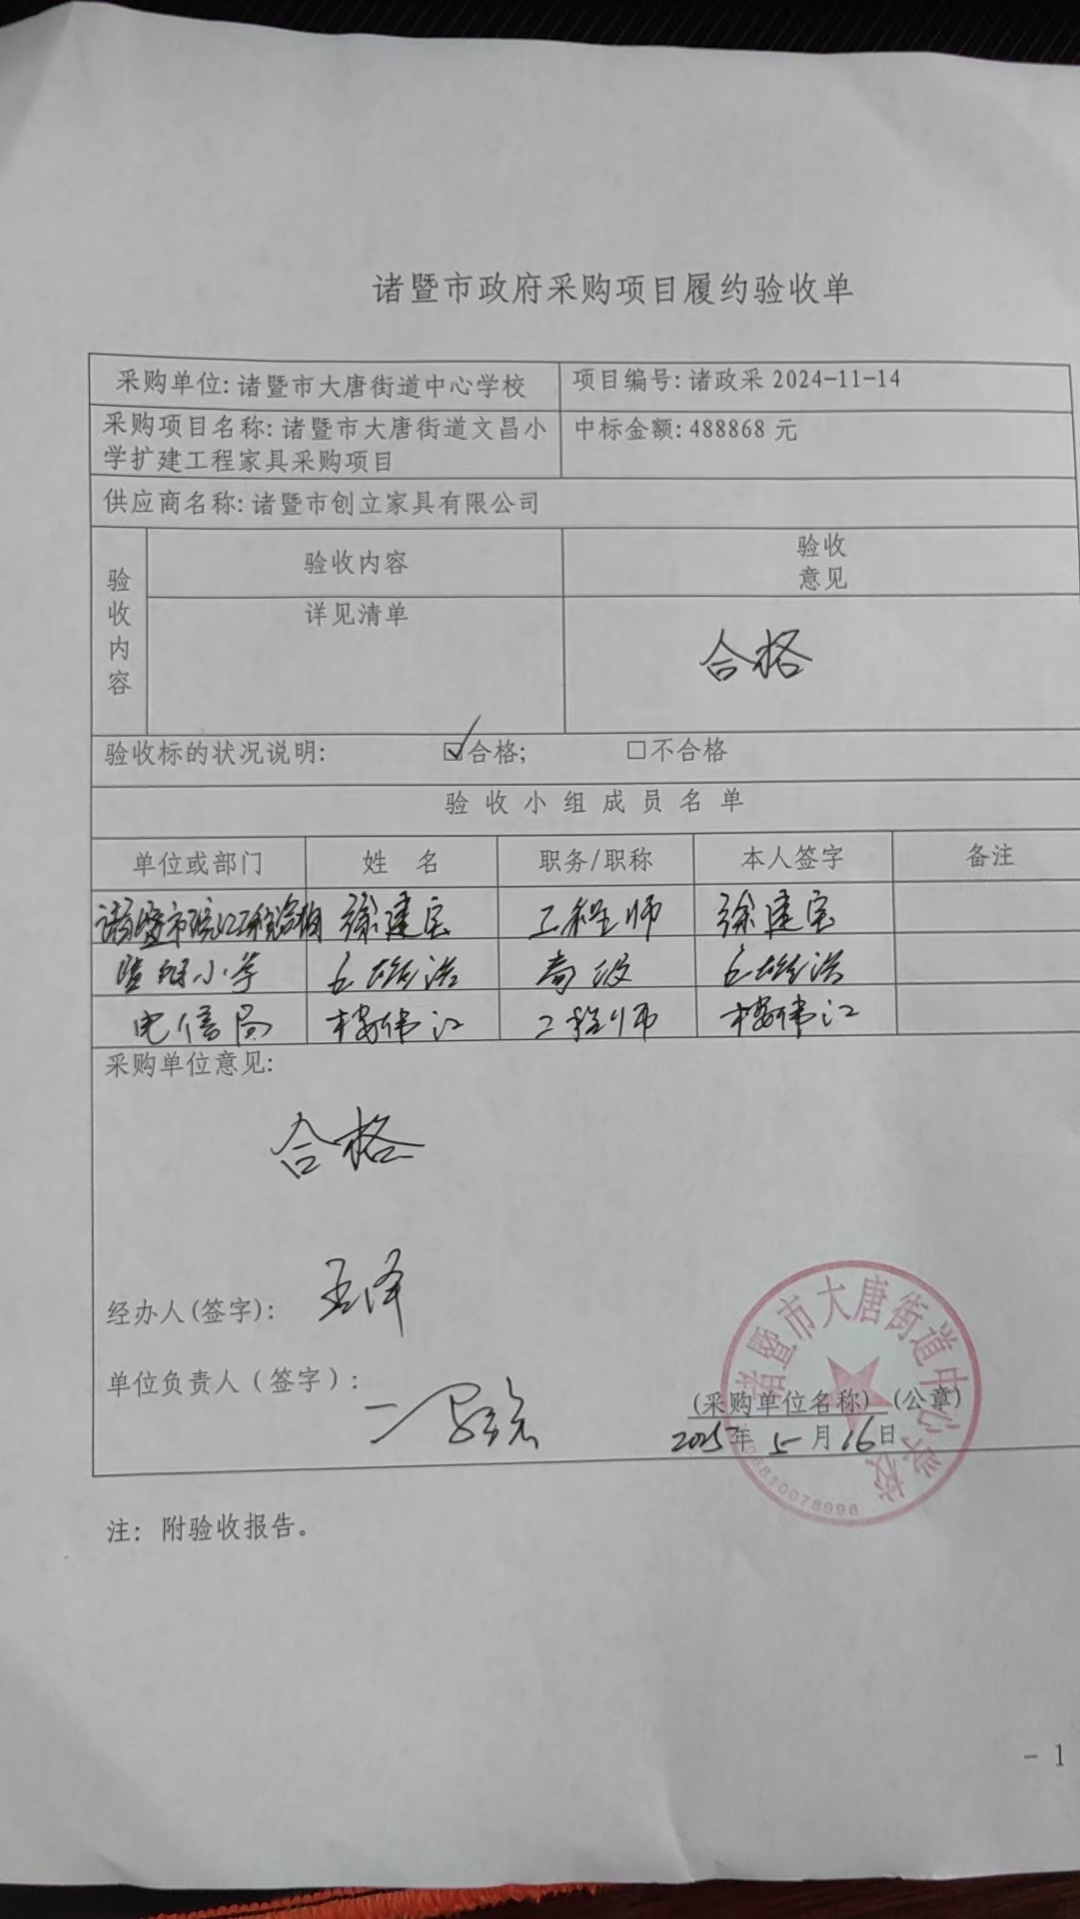 诸暨市政府采购项目履约验收单
采购单位:诸暨市大唐街道中心学校
项目编号:诸政采 2024-11-14
采购项目名称:诸暨市大唐街道文昌小
学扩建工程家具采购项目
中标金额:488868 元
供应商名称:诸暨市创立家具有限公司
验收内容
验收内容
验收
意见
详见清单
合格
验收标的状况说明: ☑合格; □不合格
验收小组成员名单
单位或部门 姓 名 职务/职称 本人签字 备注
诸暨市 徐建宝 工程师 徐建宝
小学 高级
电信局 楼伟江 工程师 楼伟江
采购单位意见:
合格
经办人(签字):
单位负责人（签字）:
(采购单位名称) (公章)
2025年 5 月 16日
诸暨市大唐街道中心学校
6810078998
注: 附验收报告。
- 1